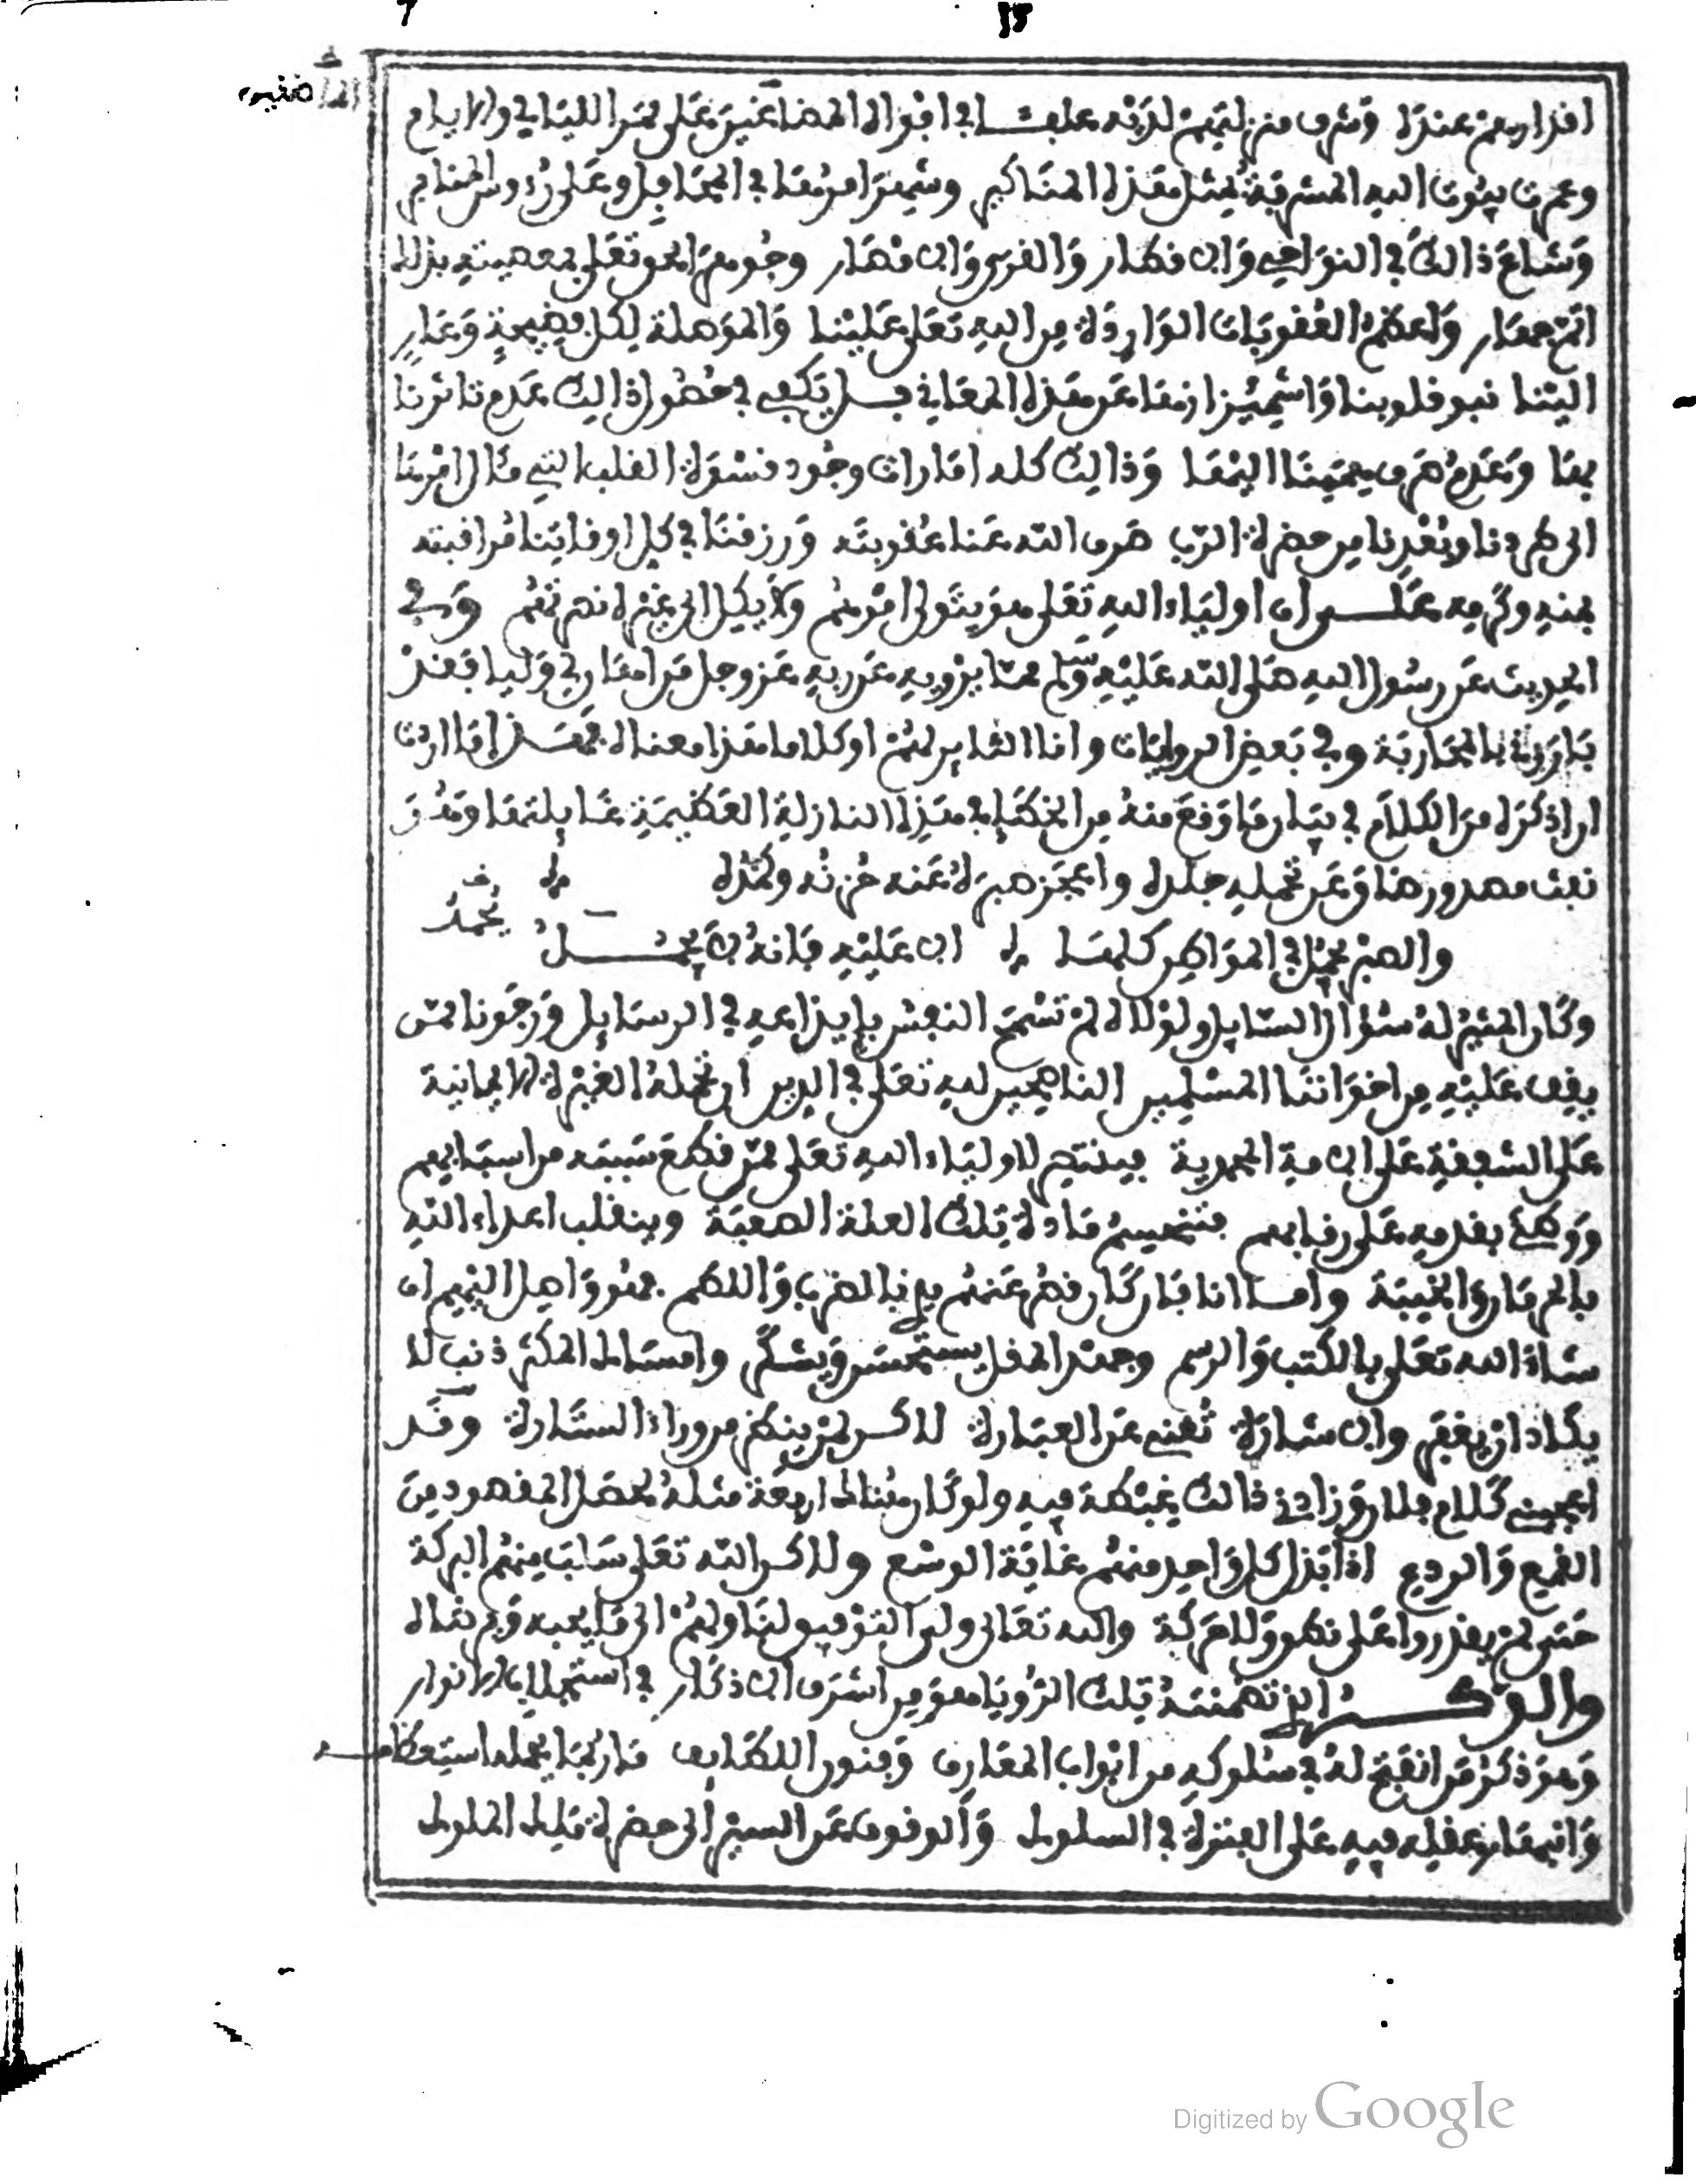 اقدارهم عنده وشرف منزلتهم لديه علقت في افواه الماضغين على ممر الليالي والايام
وعمرت بيوت الله المشرفة بمثل هذه المناكير وشهر امرها في المحافل وعلى رءوس المنابر
وشاع ذالك في النواحي والاقطار والقرى والامصار وجوهر الحق تعلى بمعصيته بذالك
اتم جهار واعظم العقوبات الواردة من الله تعلى علينا والموصلة لكل فضيحة وعار
الينا نبو قلوبنا واشميزازها عن هذه المعاني بل يكفي في حصول ذالك عدم تاثرنا
بها وعدم صرف هممنا اليها وذالك كله امارات وجود قسوة القلب التي مئال امرها
الى طردنا وبعدنا من حضرة الرب صرف الله عنا عقوبته ورزقنا في كل اوقاتنا مراقبته
بمنه وكرمه على ان اولياء الله تعلى هو يتولى امرهم ولا يكل الى غيره نصرتهم وفي
الحديث عن رسول الله صلى الله عليه وسلم مما يرويه عن ربه عز وجل من اهان لي وليا فقد
بارزني بالمحاربة وفي بعض الروايات وانا الثاير لهم او كلاما هذا معناه فهذا ما اردت
ان اذكره من الكلام في بيان ما وقع منه من الخطإ في هذه النازلة العظيمة غايلتها وهو
نفث مصدور ضاق عن تحمله جلده واعجز صبره عنه حزنه وكمده
والصبر يجمل في المواطن كلها الا عليه فانه لا يجمل
وكان المثير له سؤال السايل ولولاه لم تسمح النفس بايداعه في الرسايل ورجونا ممن
يقف عليه من اخواننا المسلمين الناصحين لله تعلى في الدين ان تحمله الغيرة الايمانية
على الشفقة على الامة المحمدية فينتصر لاولياء الله تعلى ممن قطع سببه من اسبابهم
ووطئ بقدمه على رقابهم فتنحسم مادة تلك العلة الصعبة وينقلب اعداء الله
بالحرمان والخيبة واما انا فان كان قصر عنهم يدي بالضرب واللطم فهو واصل اليهم ان
شاء الله تعلى بالكتب والرسم وجهد المقل يستحسن ويشكر وامساك المكثر ذنب لا
يكاد ان يغفر والاشارة تغني عن العبارة لاكن لمن ينظر من وراء الستارة وقد
اعجبني كلام فلان وزادني ذالك غبطة فيه ولو كان هنالك اربعة مثله لحصل المقصود من
القمع والردع اذا بذل كل واحد منهم غاية الوسع ولاكن الله تعلى سلب منهم البركة
حتى لم يقدروا على نطق ولا حركة والله تعالى ولي التوفيق لنا ولهم الى ما يحبه ويرضاه
والذكر الذي تضمنته تلك الرؤيا هو من اشرف الاذكار في استجلاب الانوار
وهو ذكر من انفتح له في سلوكه من ابواب المعارف وفنون اللطايف ما ربما يحمله استعظامه
وانبهار عقله فيه على الفترة في السلوك والوقوف عن السير الى حضرة ملك الملوك